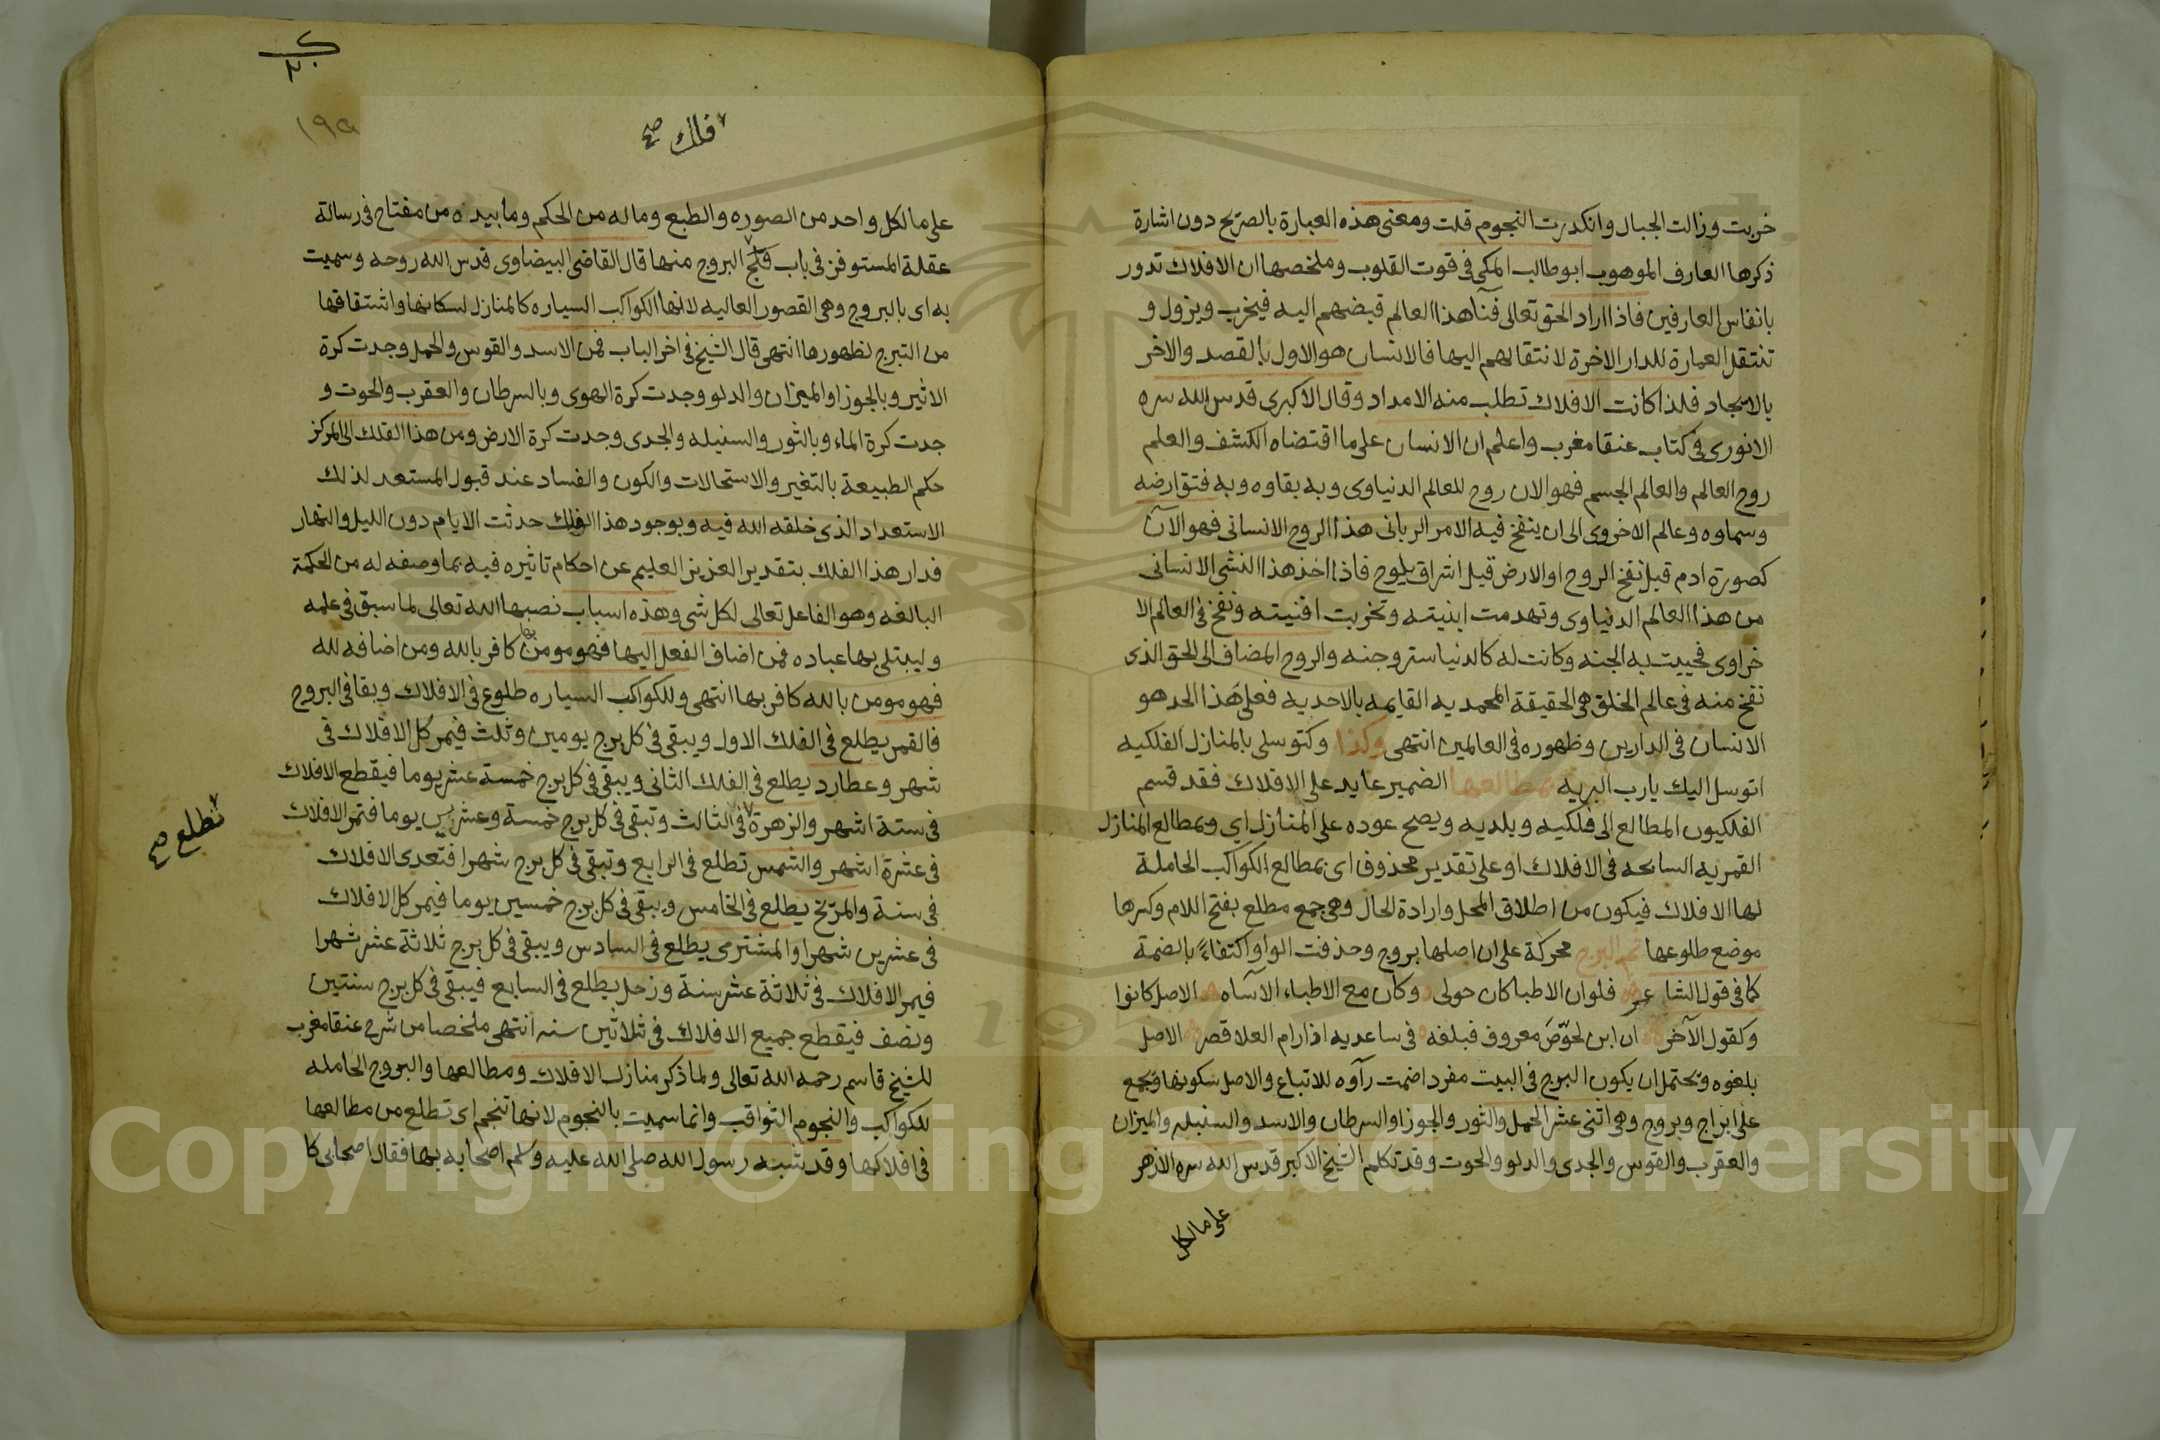 خربت وزالت الجبال وانكدرت النجوم قلت ومعنى هذه العبارة بالصريح دون اشارة
ذكرها العارف الموهوب ابو طالب المكي في قوت القلوب وملخصها ان الافلاك تدور
بانفاس العارفين فاذا اراد الحق تعالى فنآ هذا العالم قبضهم اليه فيخرب ويزول و
تنتقل العمارة للدار الاخرة لانتقالهم اليها فالانسان هو الاول بالقصد والاخر
بالايجاد فلذا كانت الافلاك تطلب منه الامداد وقال الاكبرى قدس الله سره
الانورى في كتاب عنقا مغرب واعلم ان الانسان على ما اقتضاه الكشف والعلم
روح العالم والعالم الجسم فهو الان روح للعالم الدنياوى وبه بقاوه وبه فتق ارضه
وسماوه وعالم الاخروى الى ان ينفخ فيه الامر الربانى هذا الروح الانسانى فهو الآن
كصورة ادم قبل نفخ الروح او الارض قبل اشراق يلوح فاذا اخذ هذا النشى الانسانى
من هذا العالم الدنياوى وتهدمت ابنيته وتخربت افنيته ونفخ في العالم الا
خراوى فحييت به الجنه وكانت له كالدنيا ستر وجنه والروح المضاف الى الحق الذى
نفخ منه في عالم الخلق هى الحقيقة المحمديه القايمه بالاحديه فعلى هذا الحد هو
الانسان في الدارين وظهوره في العالمين انتهى وكذا وكتوسلى بالمنازل الفلكيه
اتوسل اليك يارب البريه بمطالعها الضمير عايد على الافلاك فقد قسم
الفلكيون المطالع الى فلكيه وبلديه ويصح عوده على المنازل اي وبمطالع المنازل
القمريه السابحه في الافلاك او على تقدير محذوف اى بمطالع الكواكب الحاملة
لها الافلاك فيكون من اطلاق المحل وارادة الحال وهى جمع مطلع بفتح اللام وكسرها
موضع طلوعها ثم البرج محركة على ان اصلها بروج وحذفت الواو اكتفاءً بالضمة
كما في قول الشاعر فلو ان الاطبا كان حولى وكان مع الاطباء الآساه الاصل كانوا
وكقول الآخر ان ابن لحوّص معروف فبلغه في ساعديه اذا رام العلا قصر الاصل
بلغوه ويحتمل ان يكون البرج في البيت مفردا ضمت رآوه للاتباع والاصل سكونها ويجمع
على ابراج وبروج وهى اثنى عشر الحمل والثور والجوزا والسرطان والاسد والسنبله والميزان
والعقرب والقوس والجدى والدلو والحوت وقد تكلم الشيخ الاكبر قدس الله سره الازهر
على ما لكل
١٩٥
فلك صح
على ما لكل واحد من الصوره والطبع وماله من الحكم وما بيده من مفتاح في رسالة
عقلة المستوفز في باب البروج منها قال القاضى البيضاوى قدس الله روحه وسميت
به اى بالبروج وهى القصور العاليه لانها الكواكب السياره كالمنازل لسكانها واشتقاقها
من التبرج لظهورها انتهى قال الشيخ في اخر الباب فمن الاسد والقوس والحمل وجدت كرة
الاثير وبالجوزا والميزان والدلو وجدت كرة الهوى وبالسرطان والعقرب والحوت و
جدت كرة الماء وبالثور والسنبله والجدى وجدت كرة الارض ومن هذا الفلك الى المركز
حكم الطبيعة بالتغير والاستحالات والكون والفساد عند قبول المستعد لذلك
الاستعداد الذى خلقه الله فيه وبوجود هذا الفلك حدثت الايام دون الليل والنهار
فدار هذا الفلك بتقدير العزيز العليم عن احكام تاثيره فيه بما وصفه له من الحكمة
البالغه وهو الفاعل تعالى لكل شى وهذه اسباب نصبها الله تعالى لما سبق في علمه
وليبتلى بها عباده فمن اضاف الفعل اليها فهو مومن بها كافر بالله ومن اضافه لله
فهو مومن بالله كافر بها انتهى وللكواكب السياره طلوع في الافلاك وبقا في البروج
فالقمر يطلع في الفلك الاول ويبقى في كل برج يومين وثلث فيمر كل الافلاك في
شهر وعطارد يطلع في الفلك الثانى ويبقى في كل برج خمسة عشر يوما فيقطع الافلاك
في ستة اشهر والزهرة في الثالث وتبقى في كل برج خمسة وعشرين يوما فتمر الافلاك
تطلع صح
في عشرة اشهر والشمس تطلع في الرابع وتبقى في كل برج شهرا فتعدى الافلاك
في سنة والمريخ يطلع في الخامس ويبقى في كل برج خمسين يوما فيمر كل الافلاك
في عشرين شهرا والمشترى يطلع في السادس ويبقى في كل برج ثلاثة عشر شهرا
فيمر الافلاك في ثلاثة عشر سنة وزحل يطلع في السابع فيبقى في كل برج سنتين
ونصف فيقطع جميع الافلاك في ثلاثين سنه انتهى ملخصا من شرح عنقا مغرب
للشيخ قاسم رحمه الله تعالى ولما ذكر منازل الافلاك ومطالعها والبروج الحامله
للكواكب والنجوم الثواقب وانما سميت بالنجوم لانها تنجم اى تطلع من مطالعها
في افلاكها وقد شبه رسول الله صلى الله عليه وسلم اصحابه بها فقال اصحابى كا
Copyright © King Saud University